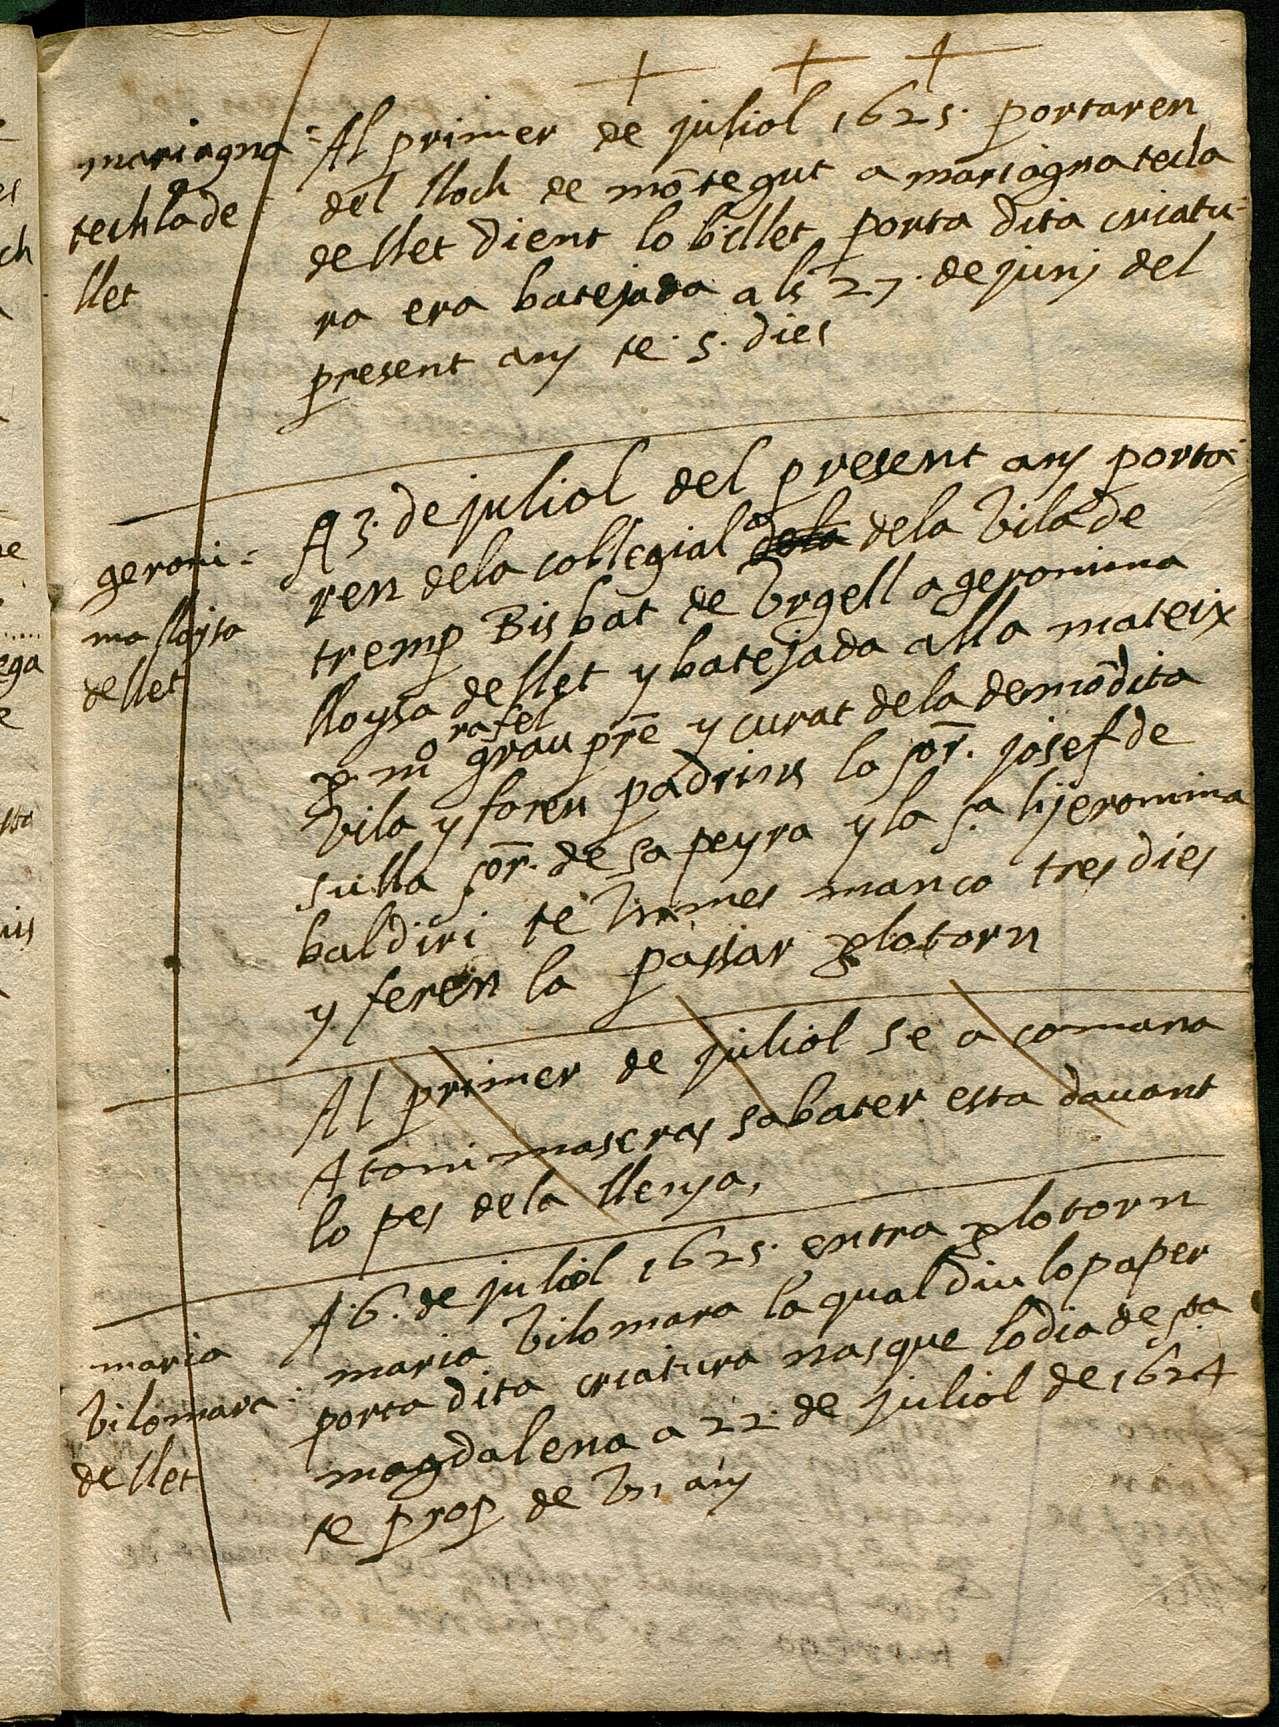 mariagna
techla de
llet
Al primer de juliol 1625. portaren
del lloch de mõtegut a mariagna tecla
de llet dient lo billet porta dita criatu-
ra era batejada als 27. de junj del
present anj te. 5. dies
geroni-
ma lloysa
de llet
A 3. de juliol del present anj porta-
ren dela collegial a dela vila de
tremp Bisbat de Vrgell a geronima
lloysa de llet y batejada alla mateix
p mº rafel grau pre y curat dela demõdita
vila y foren padrins lo sor. josef de
sulla sor. de sapeyra y la sa. hjeronima
baldiri te vn mes manco tres dies
y feren la passar p lo torn
Al primer de juliol se a comana
A toni maseras sabater esta dauant
lo pes dela llenya,
maria
vilomara
de llet
A. 6. de juliol 1625. entra p lo torn
maria vilomara la qual diu lo paper
porta dita criatura nasque lo dia de sta
magdalena a 22. de juliol de 1624
te prop de vn anj